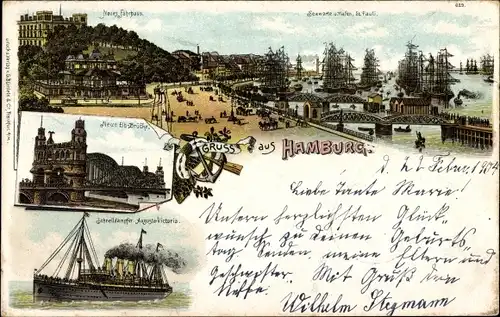 Neues Fährhaus.
Seewarte u. Hafen, St. Pauli.
Neue Elb-Brücke.
GRUSS aus HAMBURG.
Schnelldampfer Augusta Victoria.
d. 22 Febr. 1904
Liebe Tante Marie!
Unsern herzlichsten Glück
wunsch zu Deinem Geburts
tag senden meine Eltern und
Geschwister. Mit Gruß Dein
Neffe. Wilhelm Stegmann